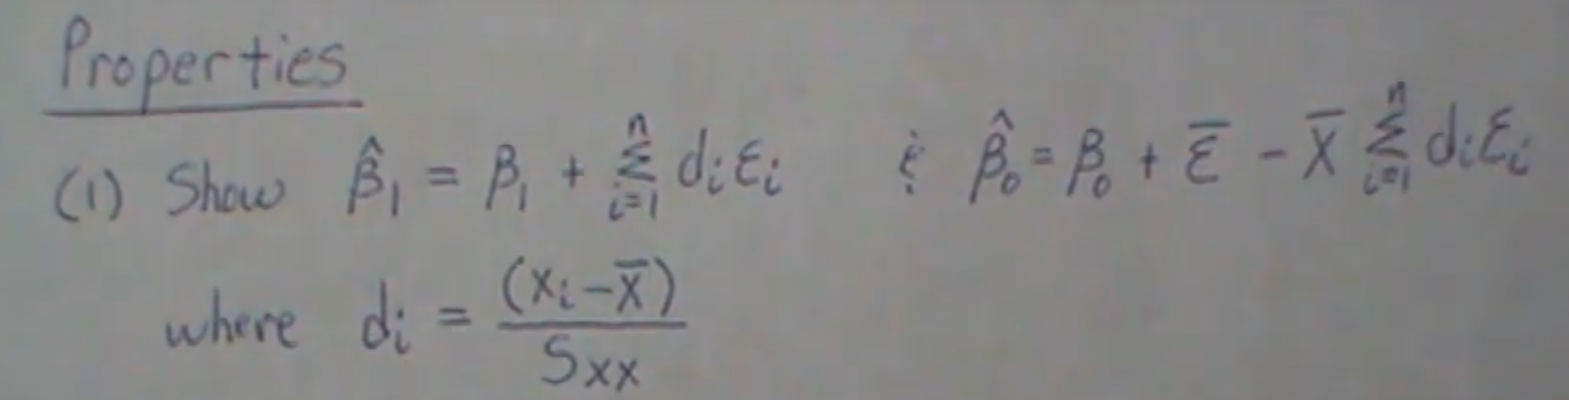 Properties
(1) Show β̂₁ = β₁ + Σᵢ₌₁ⁿ dᵢεᵢ & β̂₀ = β₀ + ε̅ - x̅ Σᵢ₌₁ⁿ dᵢεᵢ
where dᵢ = (xᵢ - x̅) / Sxx